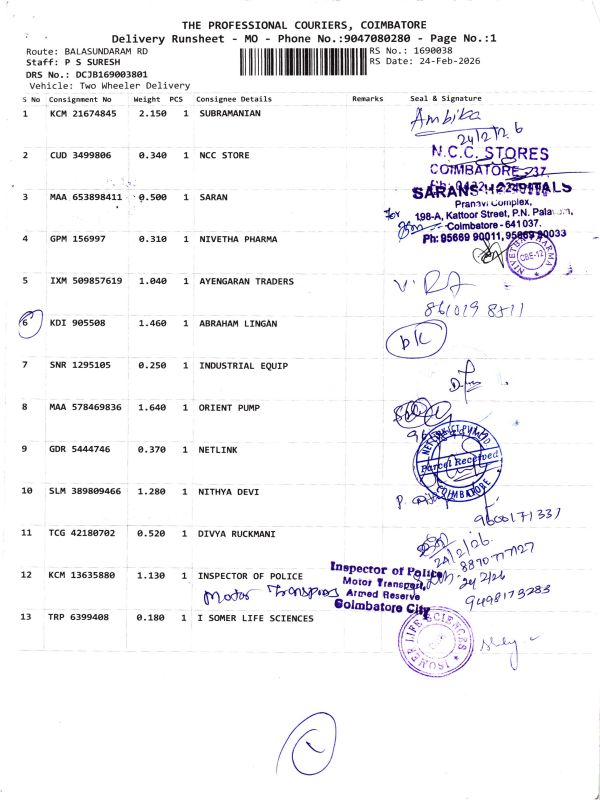 THE PROFESSIONAL COURIERS, COIMBATORE
Delivery Runsheet - MO - Phone No.:9047080280 - Page No.:1
Route: BALASUNDARAM RD
RS No.: 1690038
Staff: P S SURESH
RS Date: 24-Feb-2026
DRS No.: DCJB169003801
Vehicle: Two Wheeler Delivery
S No Consignment No Weight PCS Consignee Details Remarks Seal & Signature
1 KCM 21674845 2.150 1 SUBRAMANIAN Ambika
24/2/26
2 CUD 3499806 0.340 1 NCC STORE N.C.C. STORES
COIMBATORE-37
3 MAA 653898411 0.500 1 SARAN
Pranavi Complex,
198-A, Kattoor Street, P.N. Palayam,
for Coimbatore - 641 037.
Ph: 95669 90011, 95669 90033
4 GPM 156997 0.310 1 NIVETHA PHARMA NIVETHA PHARMA
CBE-12
5 IXM 509857619 1.040 1 AYENGARAN TRADERS
6 KDI 905508 1.460 1 ABRAHAM LINGAN
7 SNR 1295105 0.250 1 INDUSTRIAL EQUIP
8 MAA 578469836 1.640 1 ORIENT PUMP
9 GDR 5444746 0.370 1 NETLINK
Parcel Received
COIMBATORE
10 SLM 389809466 1.280 1 NITHYA DEVI
9600171337
11 TCG 42180702 0.520 1 DIVYA RUCKMANI
24/2/26
8870777127
12 KCM 13635880 1.130 1 INSPECTOR OF POLICE Inspector of Police
Motor Transport Motor Transport,
Armed Reserve
Coimbatore City
24/2/26
9498173283
13 TRP 6399408 0.180 1 I SOMER LIFE SCIENCES ISOMER LIFE SCIENCES